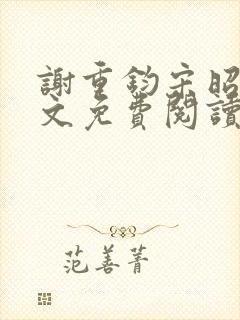 謝重鈞宋昭
文免費閱讀
范善菁